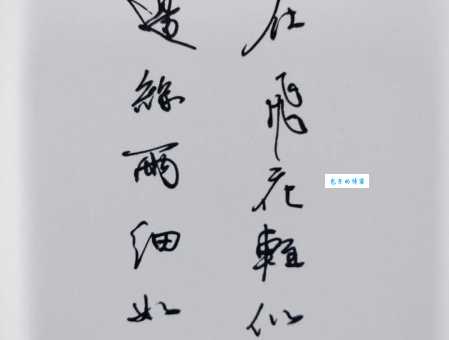 在飛花輕似
邊絲雨細如